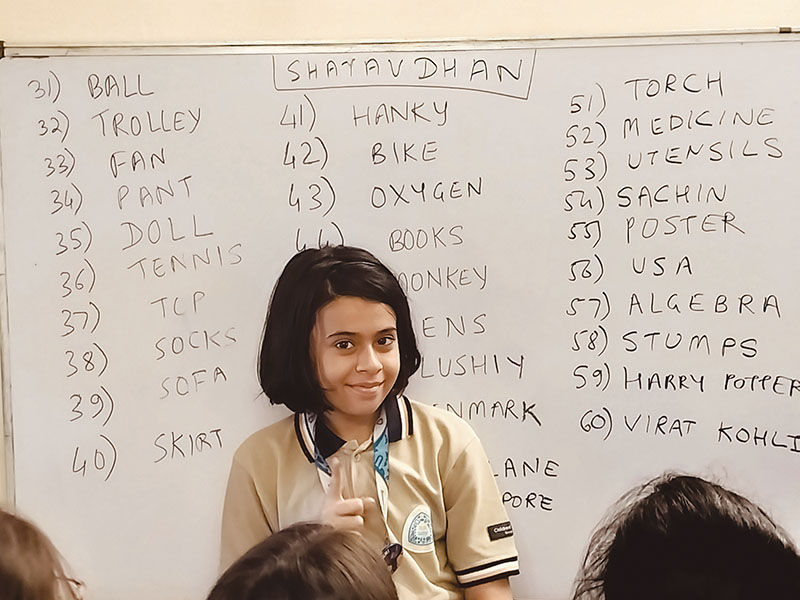 SHATAVDHAN
31) BALL
32) TROLLEY
33) FAN
34) PANT
35) DOLL
36) TENNIS
37) TCP
38) SOCKS
39) SOFA
40) SKIRT
41) HANKY
42) BIKE
43) OXYGEN
44) BOOKS
MONKEY
ENS
LUSHIY
NMARK
LANE
PORE
51) TORCH
52) MEDICINE
53) UTENSILS
54) SACHIN
55) POSTER
56) USA
57) ALGEBRA
58) STUMPS
59) HARRY POTTER
60) VIRAT KOHLI